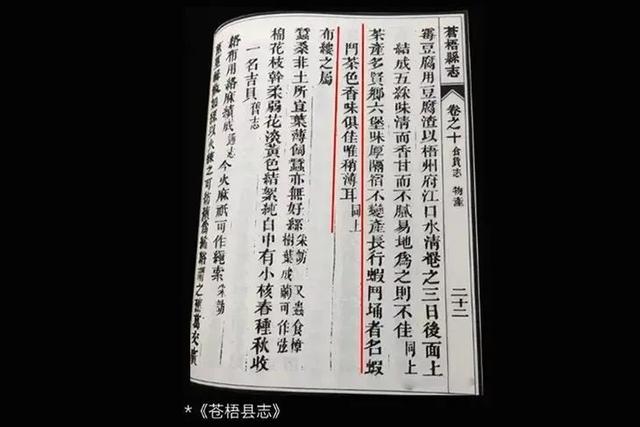 蒼梧縣志
卷之十 食貨志 物產
二十二
霉豆腐用豆腐渣以梧州府江口水清罨之三日後面上
結成五綵味清而香甘而不膩易地為之則不佳 同上
茶產多賢鄉六堡味厚隔宿不變產長行蝦鬥埇者名蝦
鬥茶色香味俱佳唯稍薄耳 同上
布縷之屬
蠶桑非土所宜葉薄蠶亦無好絲 采訪 又蟲食樟
樹葉成繭可作弦
棉花枝幹柔弱花淡黃色結絮純白中有小核春種秋收
一名吉貝 舊志
絡布用絡麻績成 通志 今火麻祇可作繩索 采訪
*《苍梧县志》